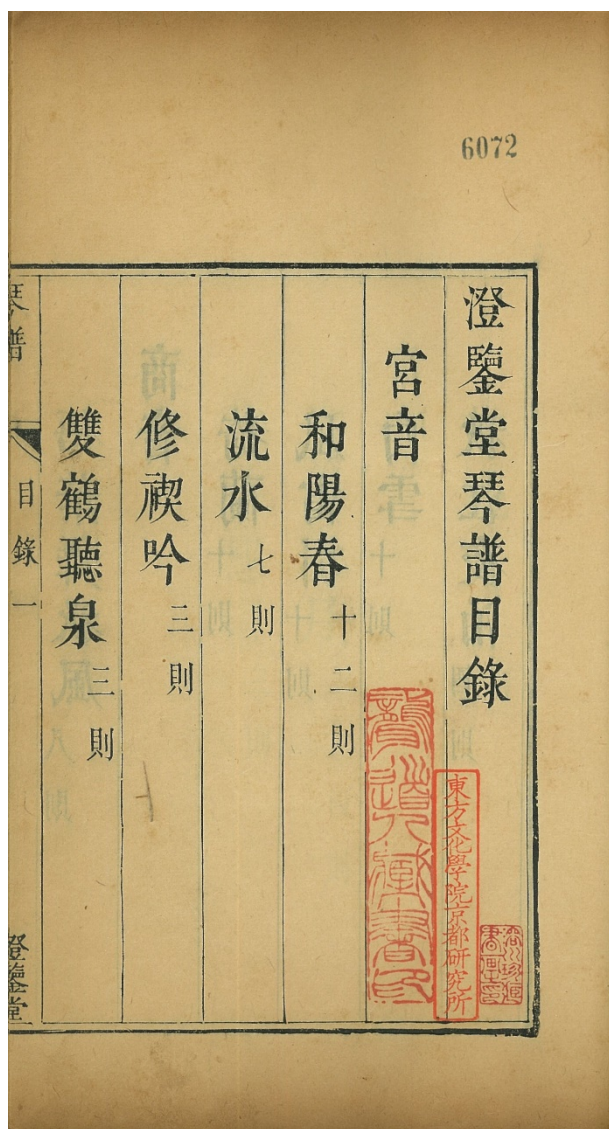 6072
澄鑒堂琴譜目錄
宮音
和陽春十二則
流水七則
修禊吟三則
雙鶴聽泉三則
琴譜
目錄一
澄鑒堂
東方文化學院京都研究所